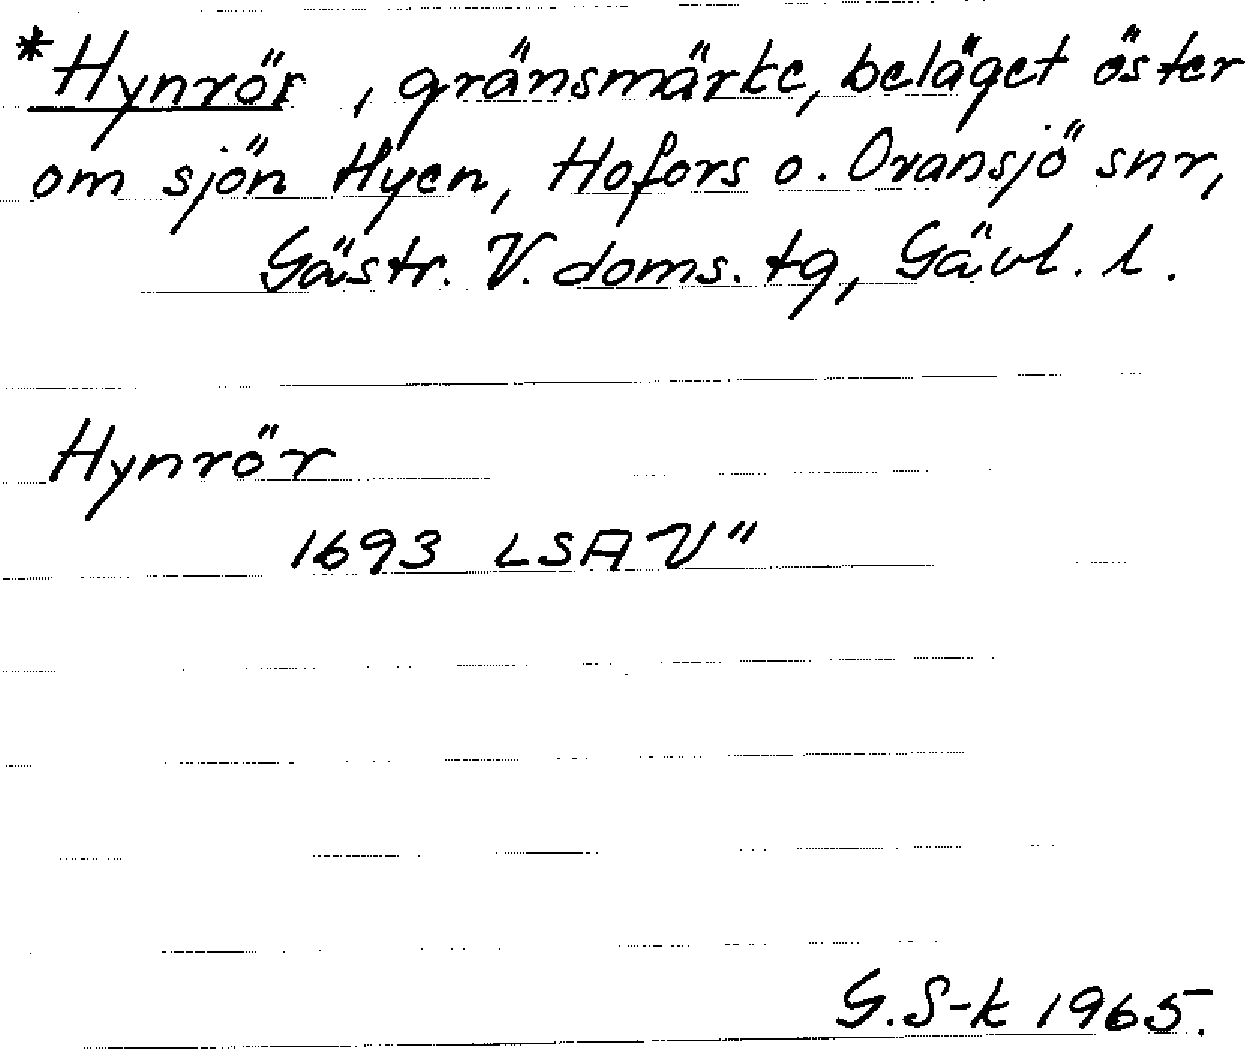 *Hynrör, gränsmärke, beläget öster
om sjön Hyen, Hofors o. Ovansjö snr,
Gästr. V. doms. tg, Gävl. l.
Hynrör
1693 LSA V"
G.S-k 1965.